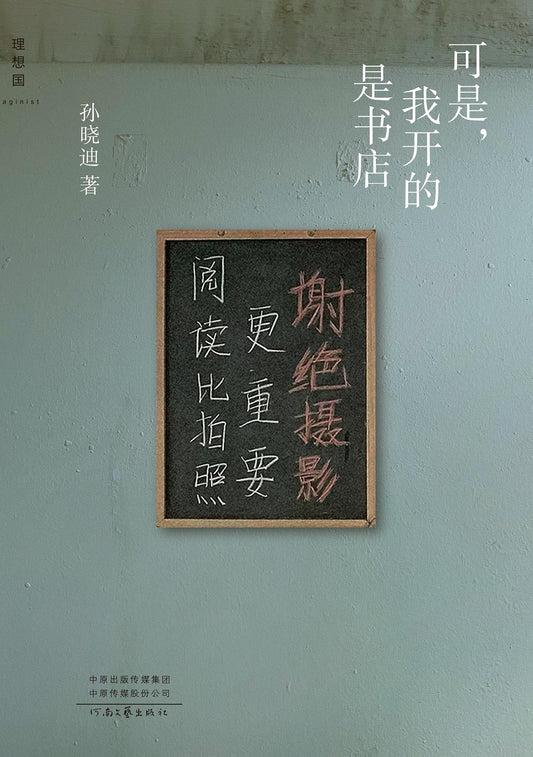 理想国
aginist
可是，
我开的
是书店
孙晓迪 著
谢绝摄影
阅读比拍照
更重要
中原出版传媒集团
中原传媒股份公司
河南文艺出版社